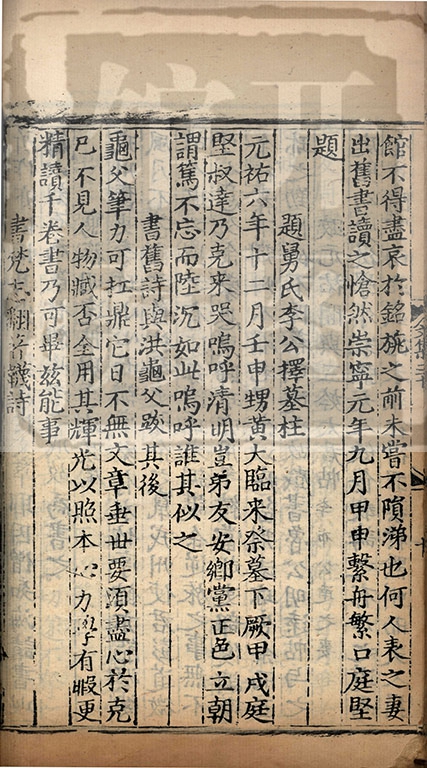 館不得盡哀於銘旐之前未嘗不隕涕也何人表之妻
出舊書讀之愴然崇寧元年九月甲申繫舟繁口庭堅
題
題舅氏李公擇墓柱
元祐六年十二月壬申甥黄大臨來祭墓下厥甲戌庭
堅叔達乃克來哭嗚呼清明豈弟友安鄉黨正色立朝
謂篤不忘而陸沉如此嗚呼誰其似之
書舊詩與洪龜父跋其後
龜父筆力可扛鼎它日不無文章垂世要須盡心於克
已不見人物臧否全用其輝光以照本心力學有暇更
精讀千卷書乃可畢兹能事
書梵志翻著襪詩